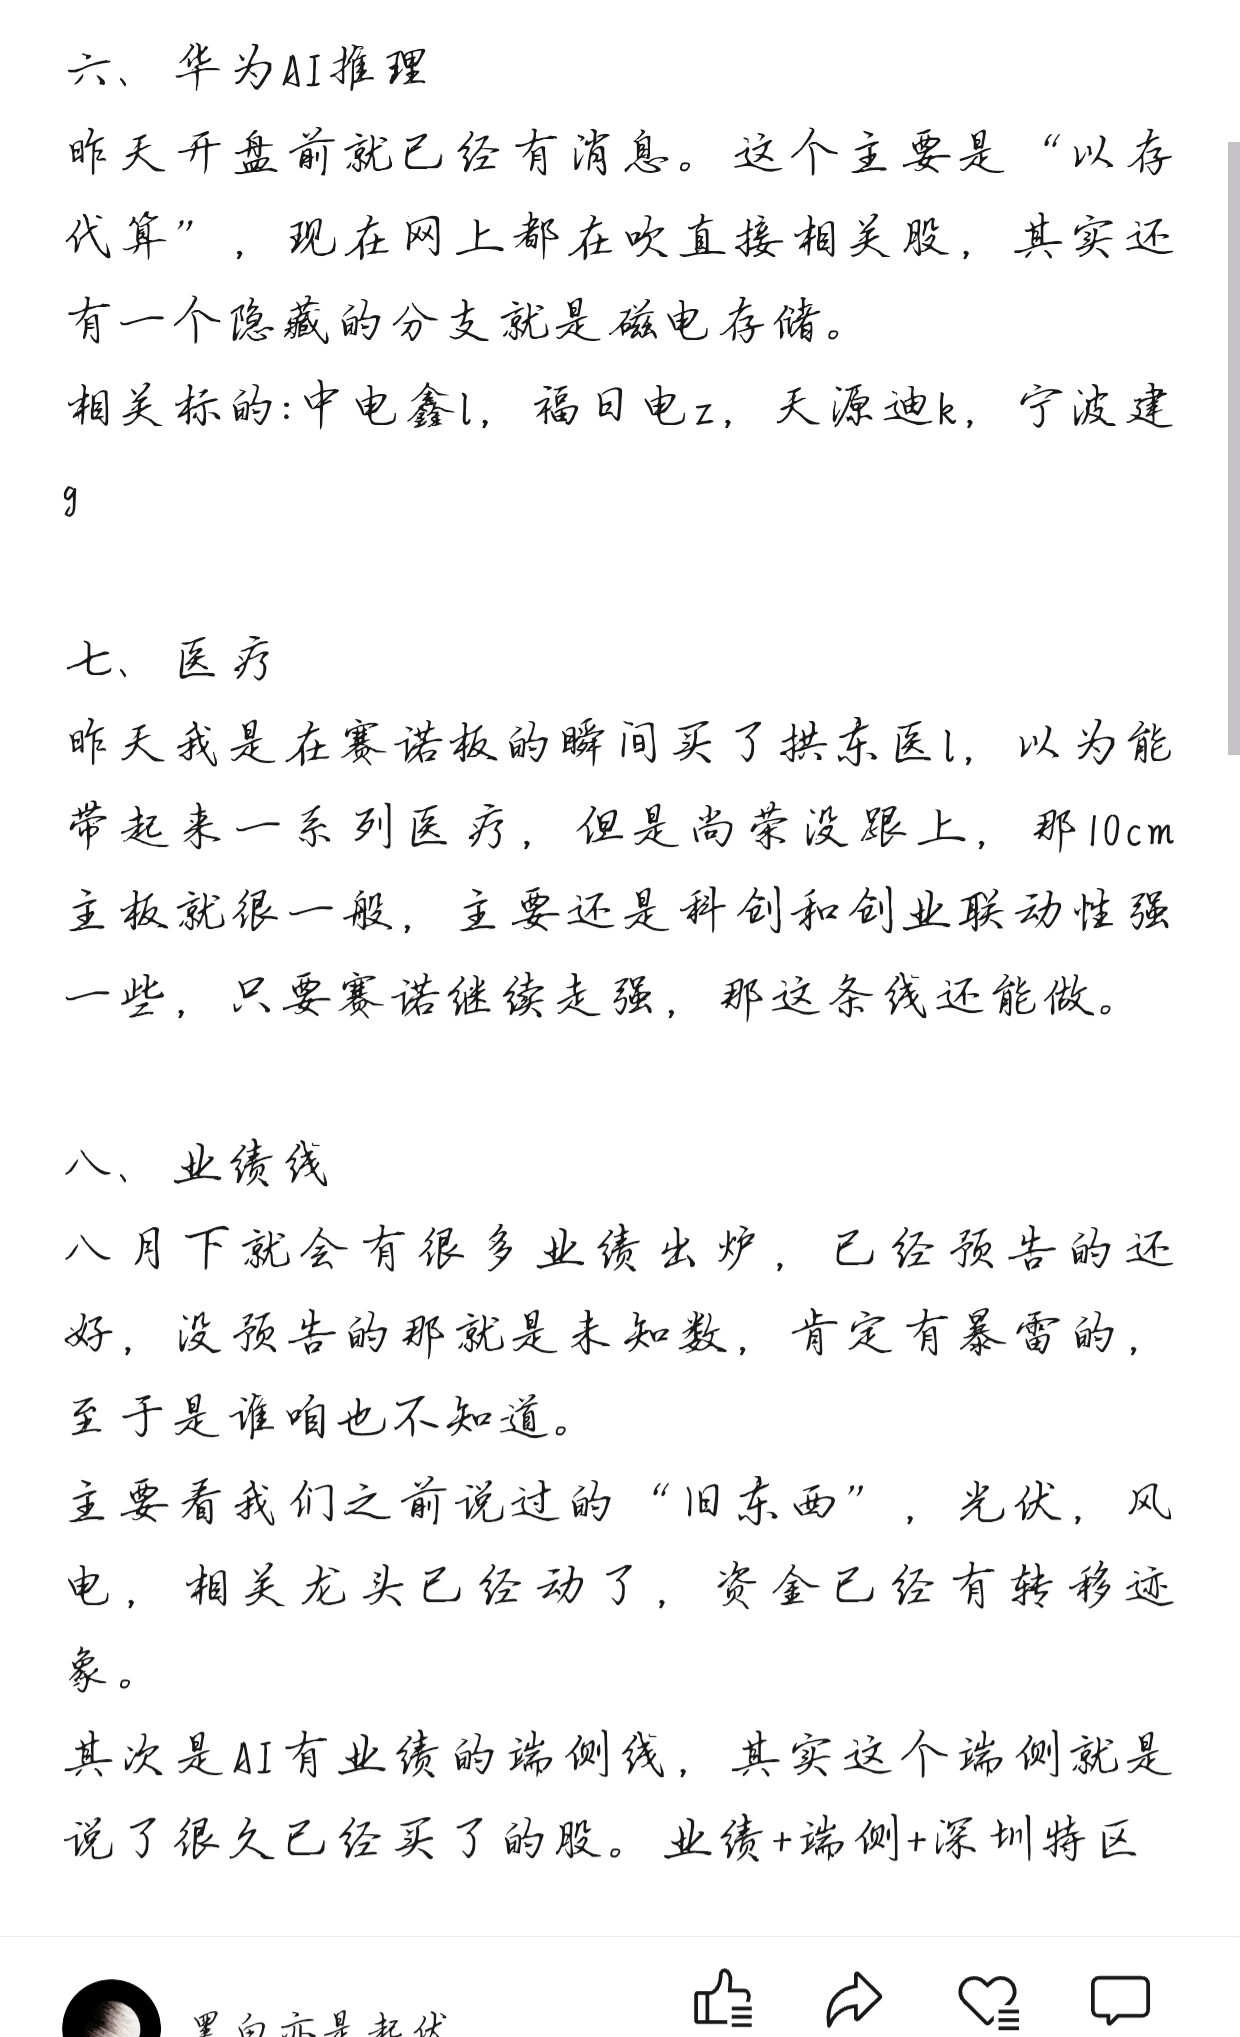 六、华为AI推理
昨天开盘前就已经有消息。这个主要是“以存
代算”，现在网上都在吹直接相关股，其实还
有一个隐藏的分支就是磁电存储。
相关标的:中电鑫l，福日电z，天源迪k，宁波建
g
七、医疗
昨天我是在赛诺板的瞬间买了拱东医l，以为能
带起来一系列医疗，但是尚荣没跟上，那10cm
主板就很一般，主要还是科创和创业联动性强
一些，只要赛诺继续走强，那这条线还能做。
八、业绩线
八月下就会有很多业绩出炉，已经预告的还
好，没预告的那就是未知数，肯定有暴雷的，
至于是谁咱也不知道。
主要看我们之前说过的“旧东西”，光伏，风
电，相关龙头已经动了，资金已经有转移迹
象。
其次是AI有业绩的端侧线，其实这个端侧就是
说了很久已经买了的股。业绩+端侧+深圳特区
黑白亦是起伏